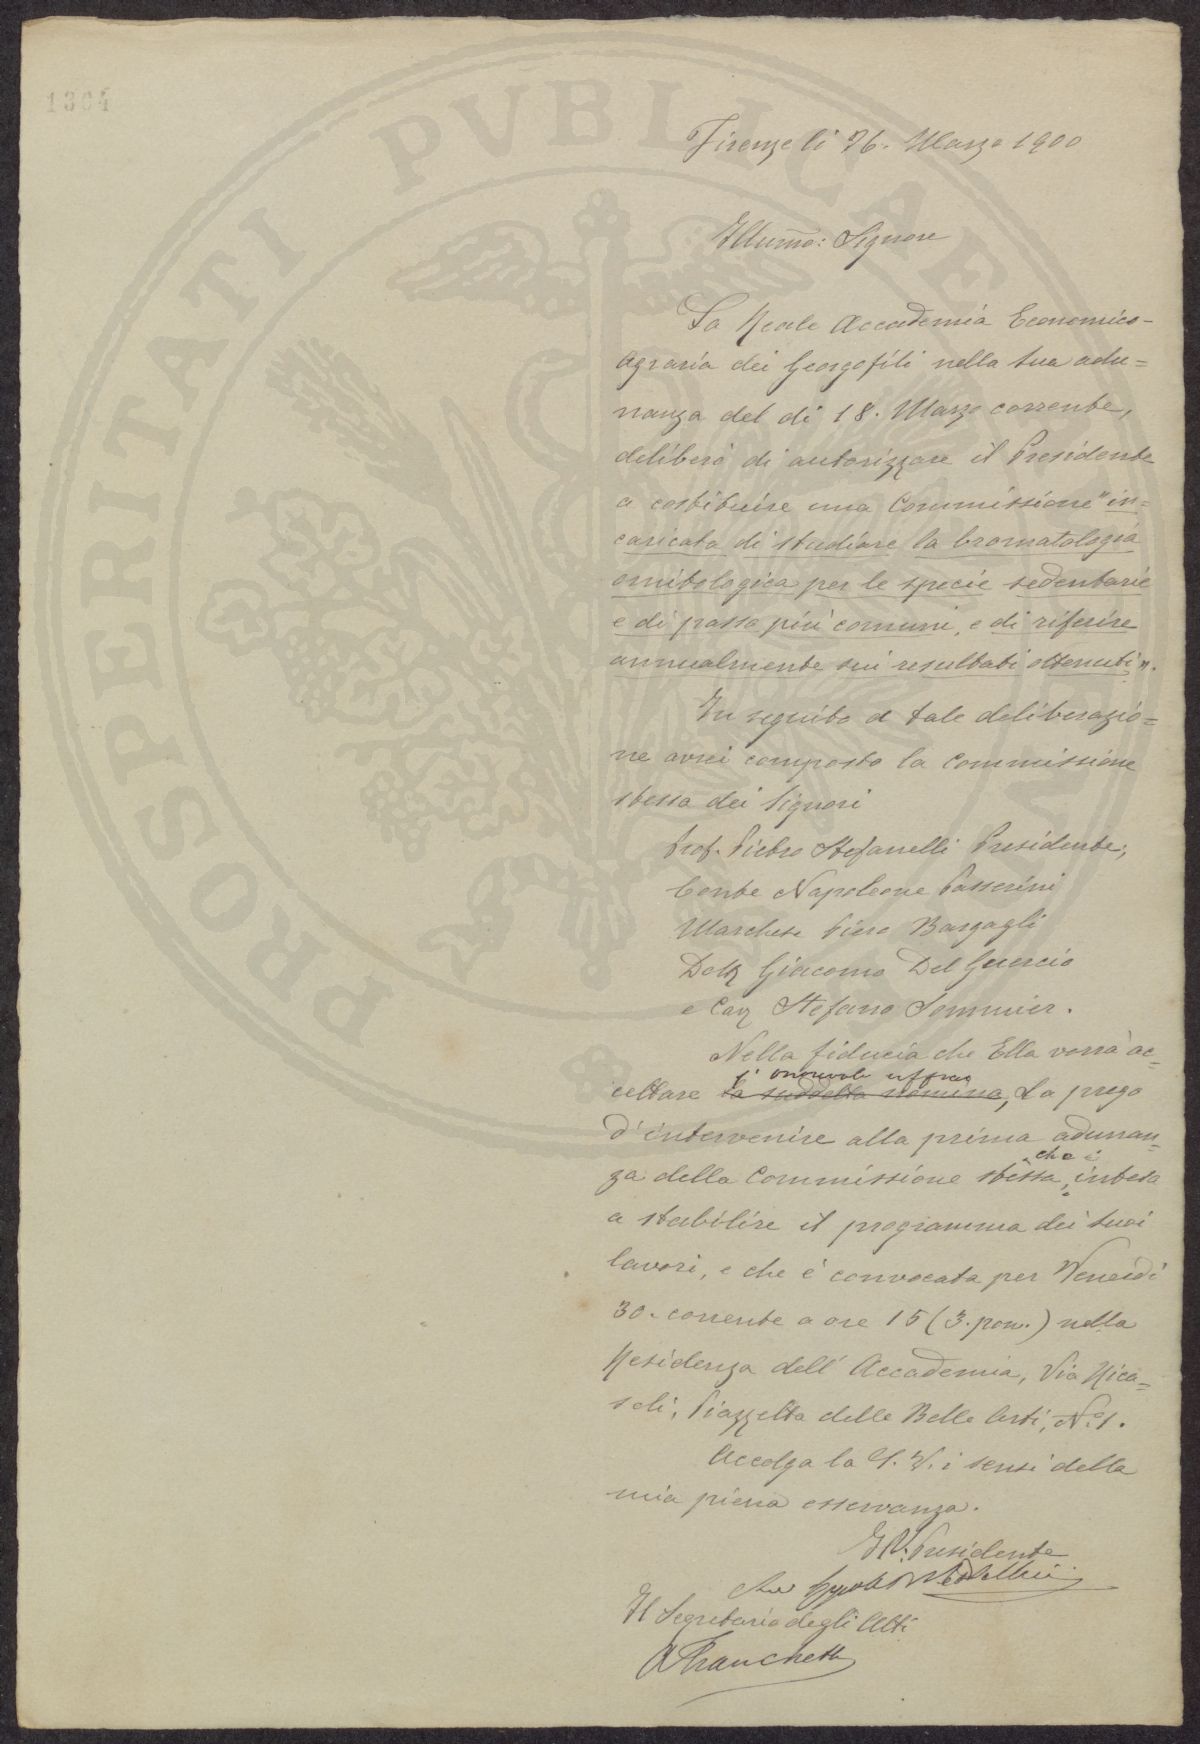 1364
PROSPERITATI PVBLICAE
Firenze li 26. Marzo 1900
Illumo: Signore
La Reale Accademia Economico-
Agraria dei Georgofili nella sua adu=
nanza del di 18. Marzo corrente,
deliberò di autorizzare il Presidente
a costituire una Commissione "in=
caricata di studiare la bromatologia
ornitologica per le specie sedentarie
e di passo più comuni, e di riferire
annualmente sui resultati ottenuti".
In seguito a tale deliberazio=
ne avrei composto la Commissione
stessa dei Signori
Prof. Pietro Stefanelli Presidente;
Conte Napoleone Passerini
Marchese Piero Bargagli
Dott Giacomo Del Guercio
e Cav Stefano Sommier.
Nella fiducia che Ella vorrà ac=
l'onorevole ufficio
cettare la suddetta nomina, La prego
d'intervenire alla prima adunan=
che è
za della Commissione stessa, intesa
a stabilire il programma dei suoi
lavori, e che è convocata per Venerdì
30. corrente a ore 15 (3. pom.) nella
Residenza dell'Accademia, Via Rica=
soli, Piazzetta delle Belle Arti, No 1.
Accolga la S. V. i sensi della
mia piena osservanza.
Il V. Presidente
Il Segretario degli Atti
A Franchetti